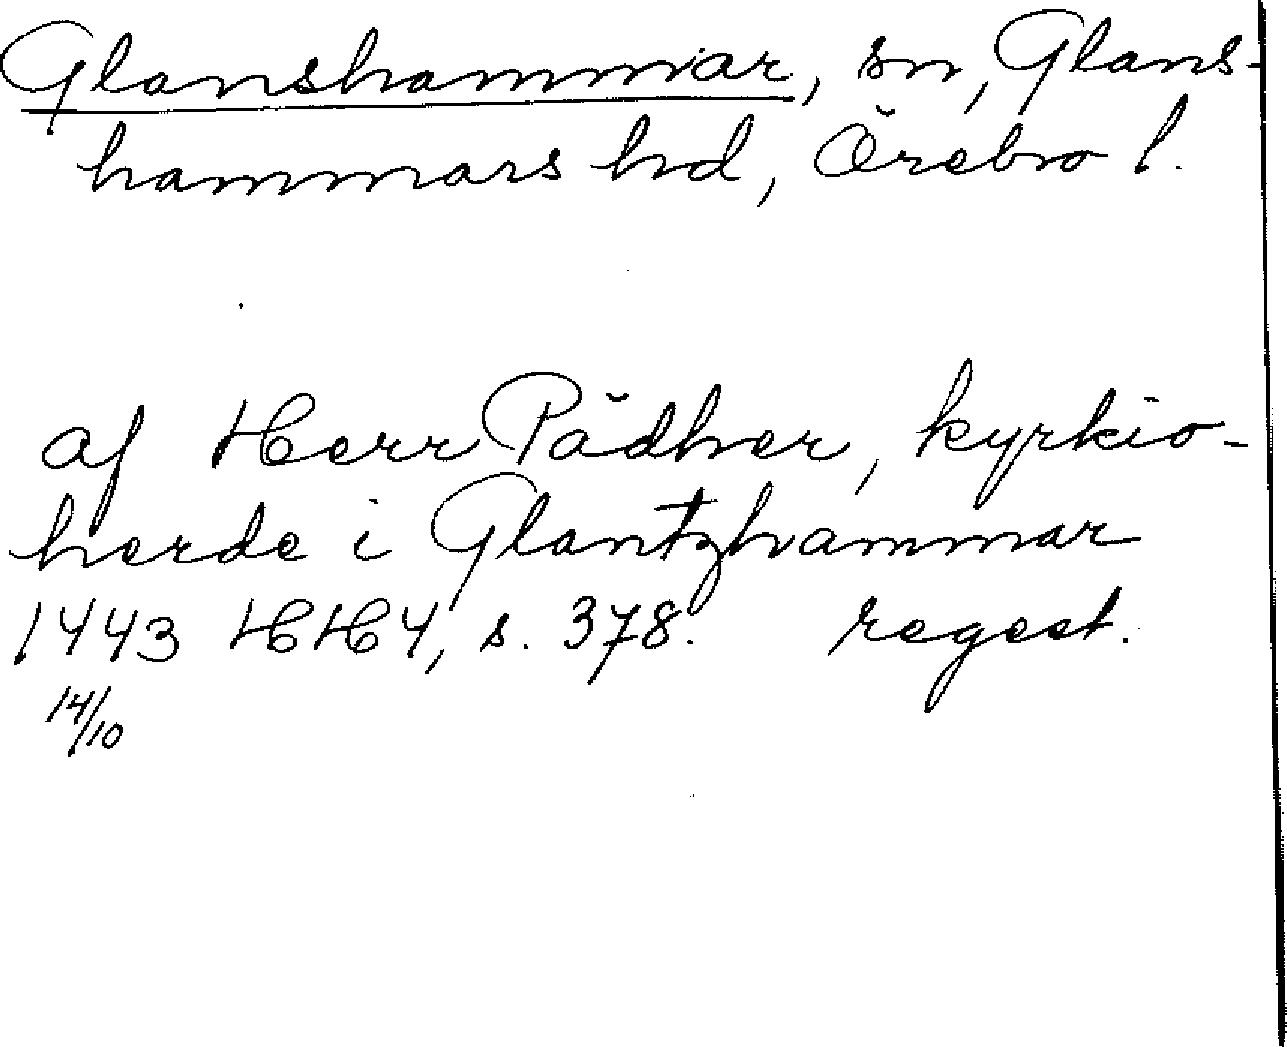 Glanshammar, sn, Glans-
hammars hd, Örebro l.
af Herr Pädher, kyrkio-
herde i Glantzhammar
1443 HH4, s. 378. regest.
14/10